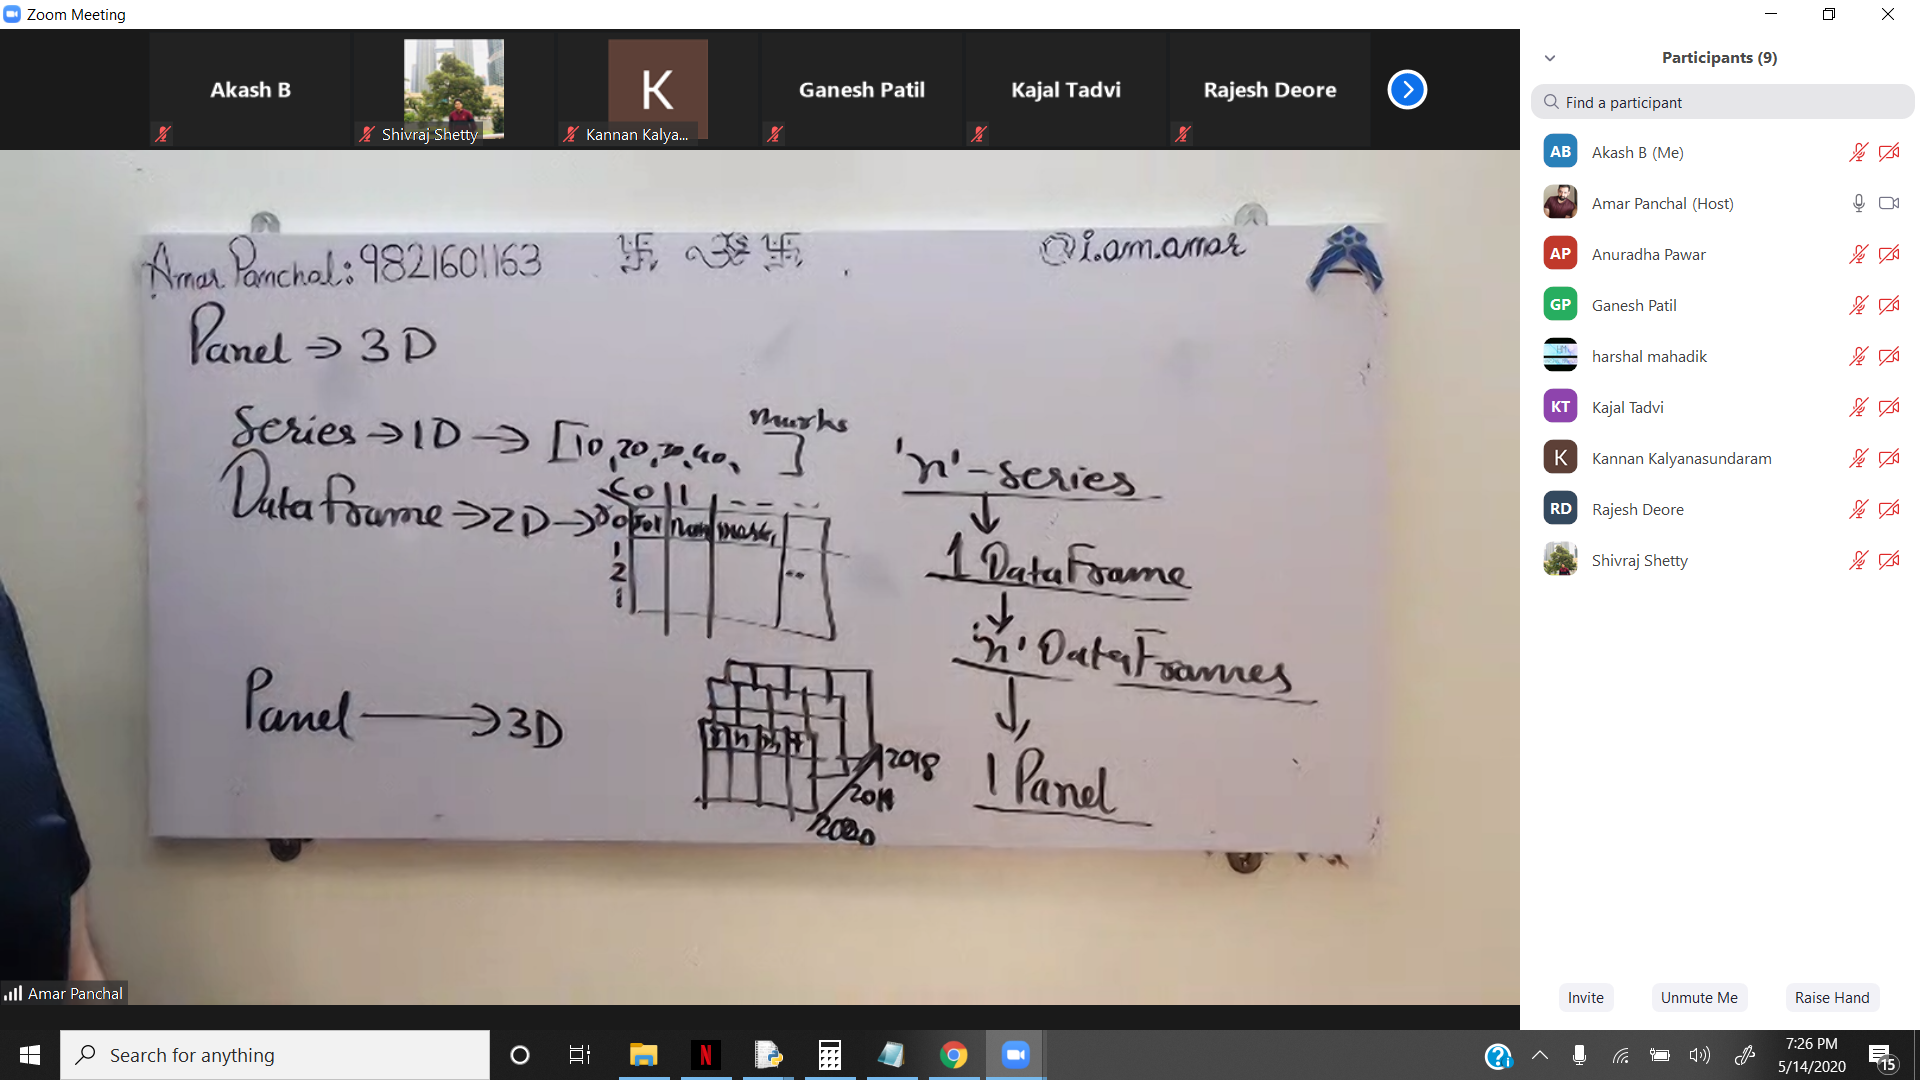 Zoom Meeting
Akash B
Shivraj Shetty
K
Kannan Kalya...
Ganesh Patil
Kajal Tadvi
Rajesh Deore
Amar Panchal: 9821601163
@i.am.amar
Panel → 3D
Series → 1D → [10, 20, 30, 40, ]
marks
DataFrame → 2D →
Col
0
1
2
rol
nam
marks
Panel → 3D
2018
2019
2020
'n' - series
1 DataFrame
'n' DataFrames
1 Panel
Amar Panchal
Participants (9)
Find a participant
AB Akash B (Me)
Amar Panchal (Host)
AP Anuradha Pawar
GP Ganesh Patil
harshal mahadik
KT Kajal Tadvi
K Kannan Kalyanasundaram
RD Rajesh Deore
Shivraj Shetty
Invite Unmute Me Raise Hand
Search for anything
7:26 PM
5/14/2020
15